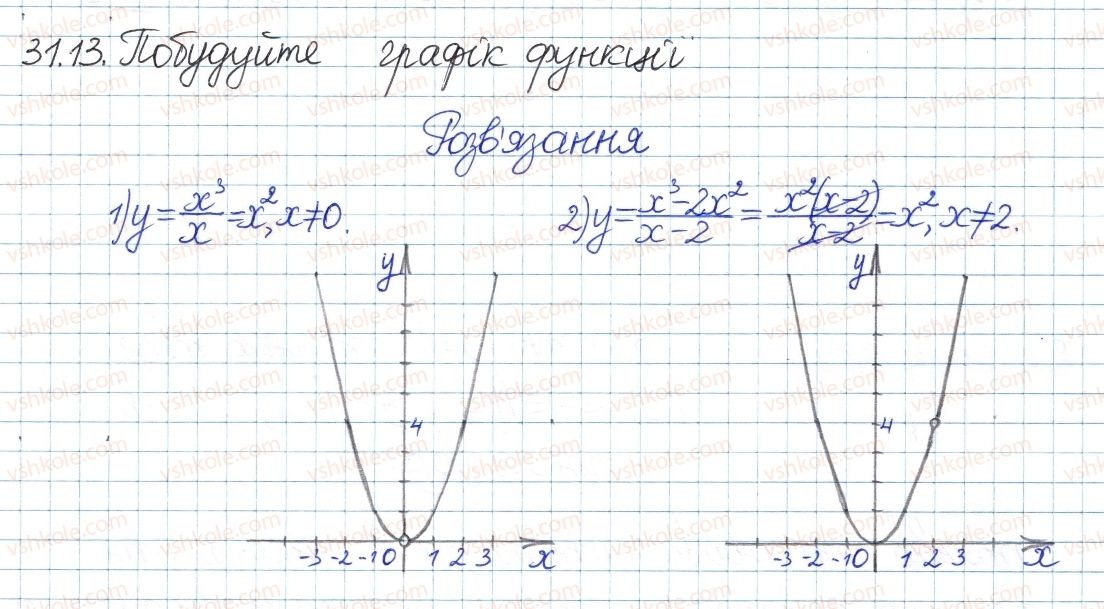 31.13. Побудуйте графік функції
Розв'язання
1) y = x³/x = x², x ≠ 0.
2) y = (x³ - 2x²)/(x - 2) = x²(x - 2)/(x - 2) = x², x ≠ 2.
y
4
-3 -2 -1 0 1 2 3 x
y
4
-3 -2 -1 0 1 2 3 x
vshkole.com